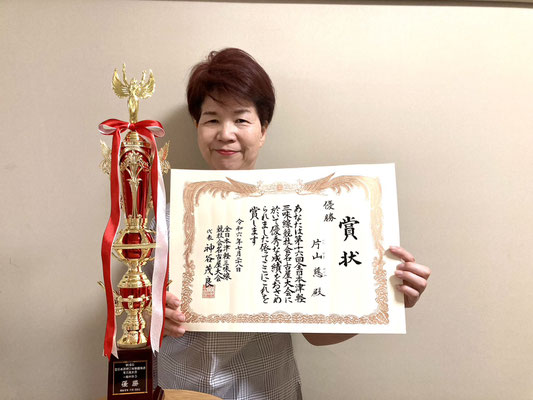 賞状
優勝
片山 慈 殿
あなたは第十六回全日本津軽
三味線競技会名古屋大会に
於いて優秀な成績をおさめ
られました依てここにこれを
賞します
令和六年七月二十八日
全日本津軽三味線
競技会名古屋大会
代表 神谷茂良
優勝